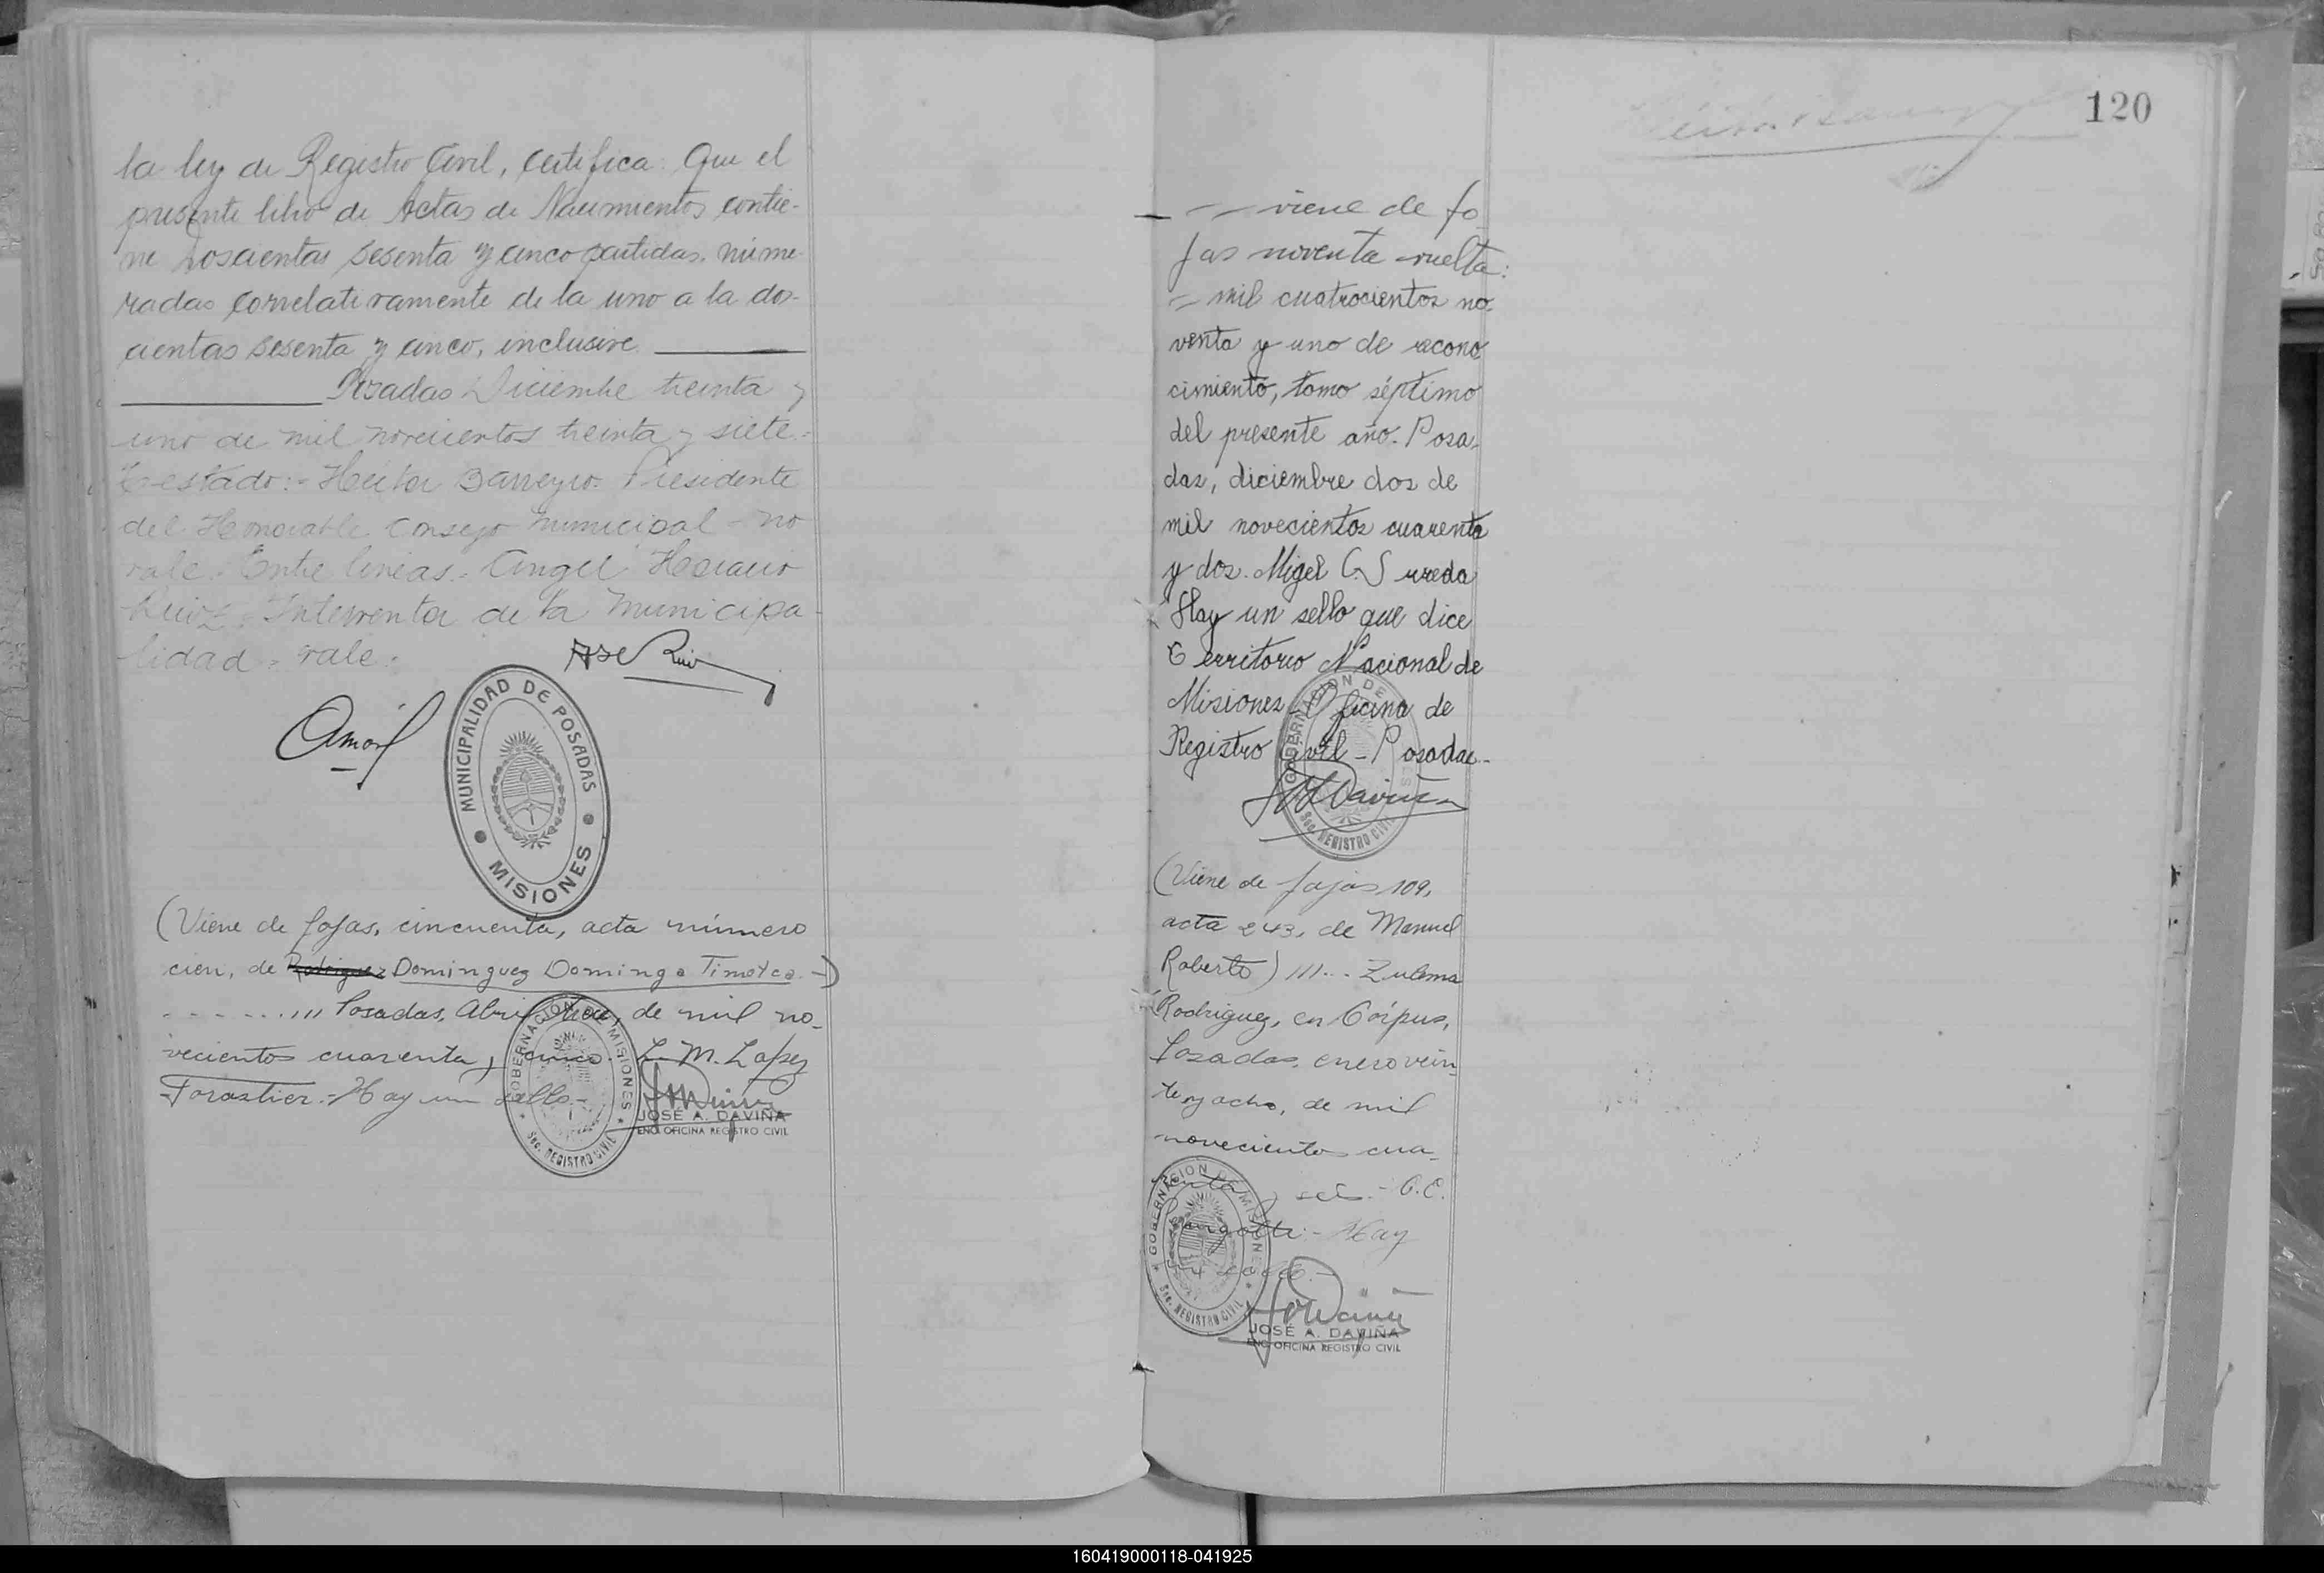 la ley de Registro Civil, certifica: Que el
presente libro de Actas de Nacimientos contie-
ne Doscientas sesenta y cinco partidas, nume-
radas correlativamente de la uno a la dos-
cientas sesenta y cinco, inclusive
Posadas Diciembre treinta y
uno de mil novecientos treinta y siete.-
Testado:- Héctor Barreyro. Presidente
del Honorable Consejo municipal - no
vale. Entre lineas.- Angel Horacio
Ruiz - Interventor de la Municipa-
lidad - vale.-
MUNICIPALIDAD DE POSADAS
MISIONES
(Viene de fojas, cincuenta, acta número
cien, de Rodriguez Dominguez Dominga Timotea.-)
------- /// Posadas, Abril de mil no-
vecientos cuarenta y cinco. L. M. Lopez
Forastier.- Hay un sello.-
GOBERNACION DE MISIONES
Sec. REGISTRO CIVIL
JOSÉ A. DAVIÑA
ENC. OFICINA REGISTRO CIVIL
120
viene de fo-
jas noventa vuelta:
= mil cuatrocientos no-
venta y uno de recono-
cimiento, tomo séptimo
del presente año. Posa-
das, diciembre dos de
mil novecientos cuarenta
y dos. Migel C. Urreda
Hay un sello que dice
Territorio Nacional de
Misiones - Oficina de
Registro Civil - Posadas -
GOBERNACION DE
Sec. REGISTRO CIVIL
(Viene de fojas 109,
acta 243, de Manuel
Roberto) ///... Zulema
Rodriguez, en Córpus,
Posadas, enero vein-
te y ocho, de mil
novecientos cua-
renta y seis.- C.E.
Hay
un sello.-
GOBERNACION DE MISIONES
Sec. REGISTRO CIVIL
JOSÉ A. DAVIÑA
ENC. OFICINA REGISTRO CIVIL
160419000118-041925